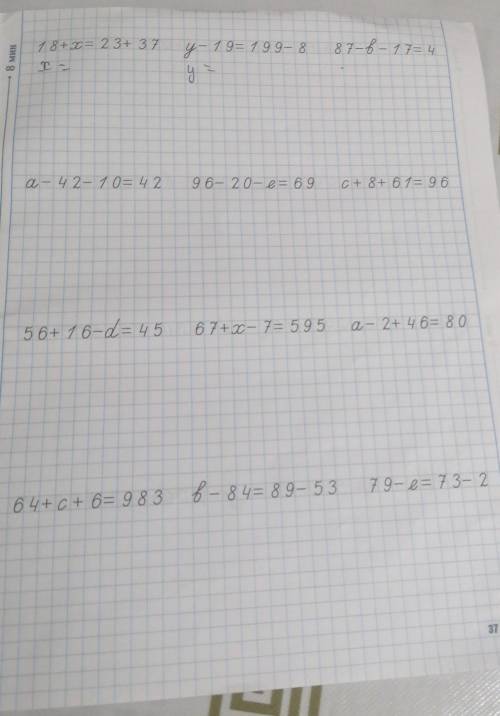 8 мин
18+x=23+37 y-19=199-8 87-в-17=4
x= y=
a-42-10=42 96-20-e=69 c+8+61=96
56+16-d=45 67+x-7=595 a-2+46=80
64+c+6=983 в-84=89-53 79-e=73-2
37